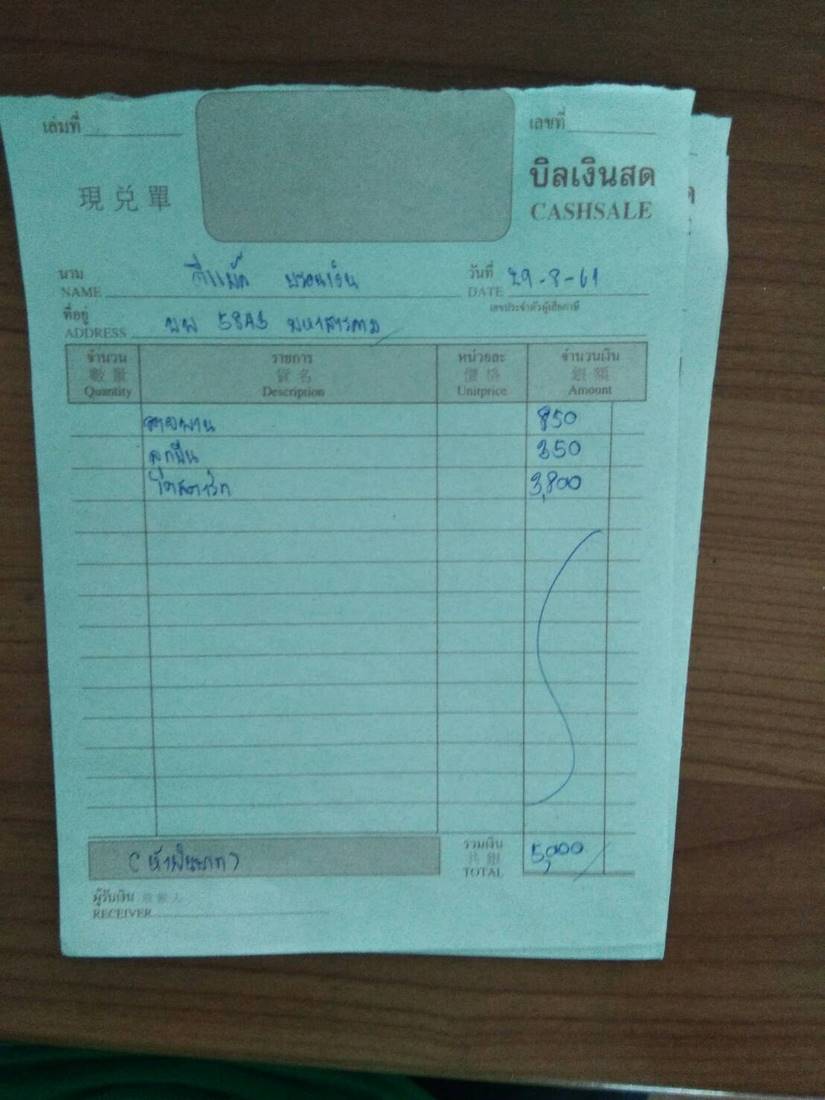 เล่มที่ เลขที่
現兌單 บิลเงินสด
CASHSALE
นาม ดีแม็ก วันที่ 29-8-61
NAME DATE
เลขประจำตัวผู้เสียภาษี
ที่อยู่ มหาสารคาม
ADDRESS
จำนวน รายการ หน่วยละ จำนวนเงิน
數量 貨名 價格 銀額
Quantity Description Unitprice Amount
สายพาน 850
ลูกปืน 350
ไดสตาร์ท 3,800
รวมเงิน 5,000
共銀
(ห้าพันบาท) TOTAL
ผู้รับเงิน
RECEIVER